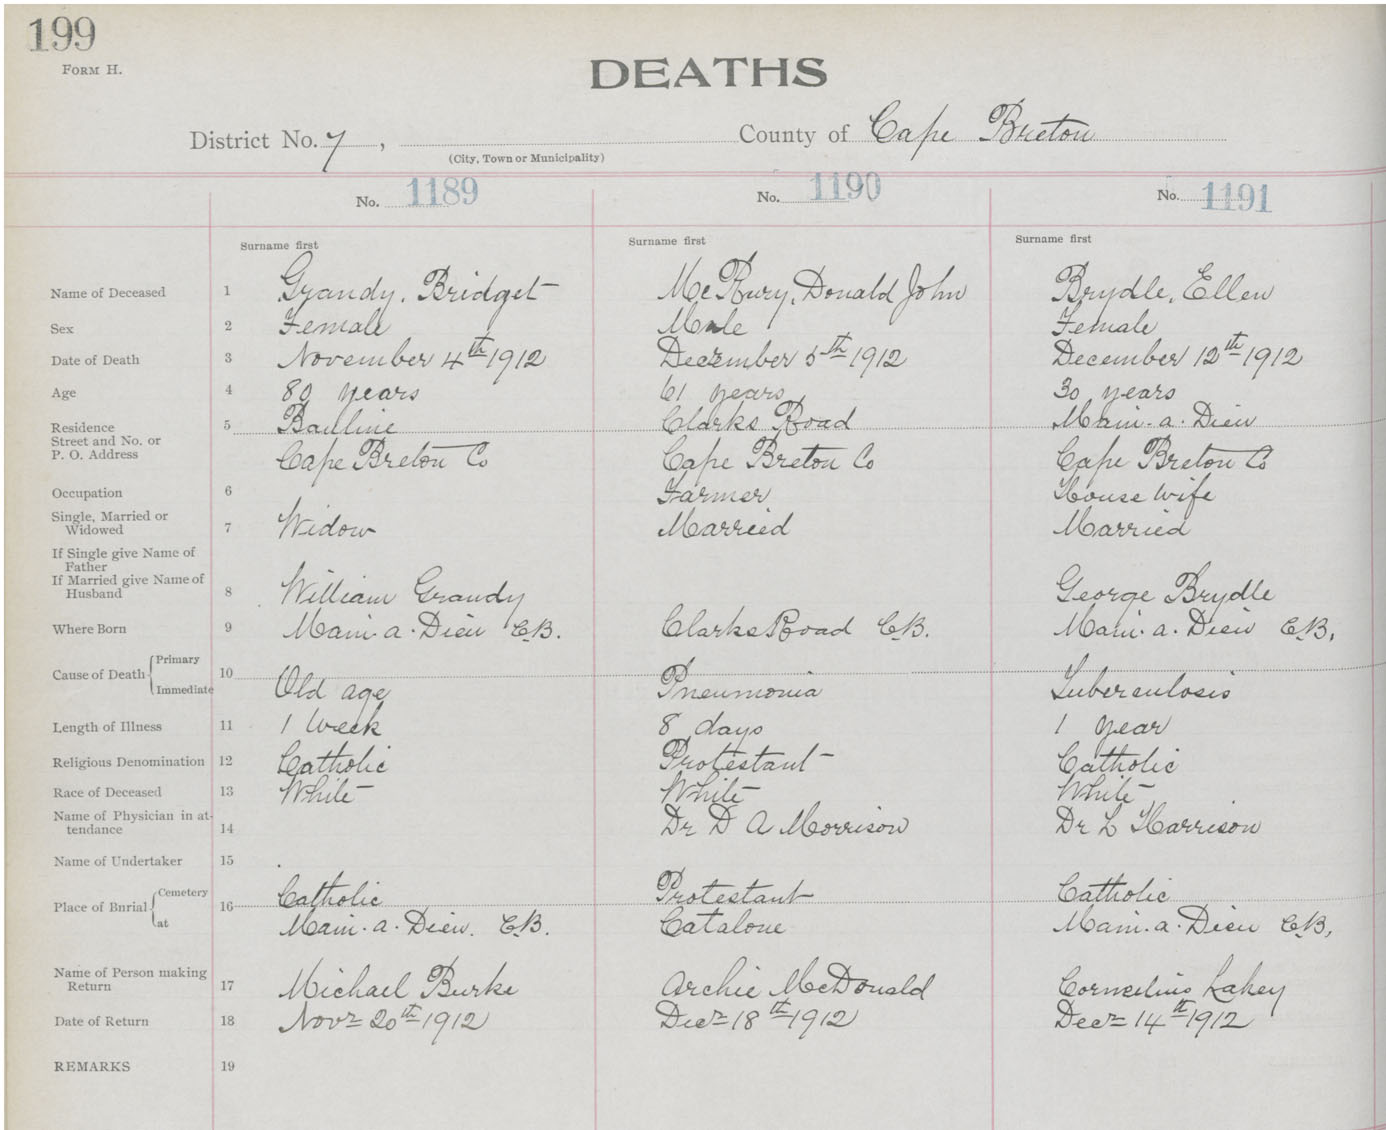 199
FORM H.
DEATHS
District No. 7 , County of Cape Breton
(City, Town or Municipality)
No. 1189 No. 1190 No. 1191
Surname first Surname first Surname first
Name of Deceased 1 Grandy, Bridget McRury, Donald John Brydle, Ellen
Sex 2 Female Male Female
Date of Death 3 November 4th 1912 December 5th 1912 December 12th 1912
Age 4 80 years 61 years 30 years
Residence 5 Bauline Clarks Road Main-a-Dieu
Street and No. or
P. O. Address Cape Breton Co Cape Breton Co Cape Breton Co
Occupation 6 Farmer House wife
Single, Married or
Widowed 7 Widow Married Married
If Single give Name of
Father
If Married give Name of
Husband 8 William Grandy George Brydle
Where Born 9 Main.a.Dieu C.B. Clarks Road C.B. Main.a.Dieu C.B.
Cause of Death Primary 10
Immediate Old age Pneumonia Tuberculosis
Length of Illness 11 1 Week 8 days 1 year
Religious Denomination 12 Catholic Protestant Catholic
Race of Deceased 13 White White White
Name of Physician in at-
tendance 14 Dr D A Morrison Dr L Harrison
Name of Undertaker 15
Place of Burial Cemetery 16 Catholic Protestant Catholic
at Main.a.Dieu. C.B. Catalone Main.a.Dieu C.B.
Name of Person making
Return 17 Michael Burke Archie McDonald Cornelius Lahey
Date of Return 18 Novr 20th 1912 Decr 18th 1912 Decr 14th 1912
REMARKS 19